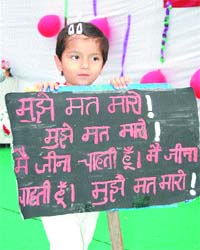 मुझे मत मारो!
मुझे मत मारो!
मैं जीना चाहती हूँ। मैं जीना
चाहती हूँ। मुझे मत मारो!